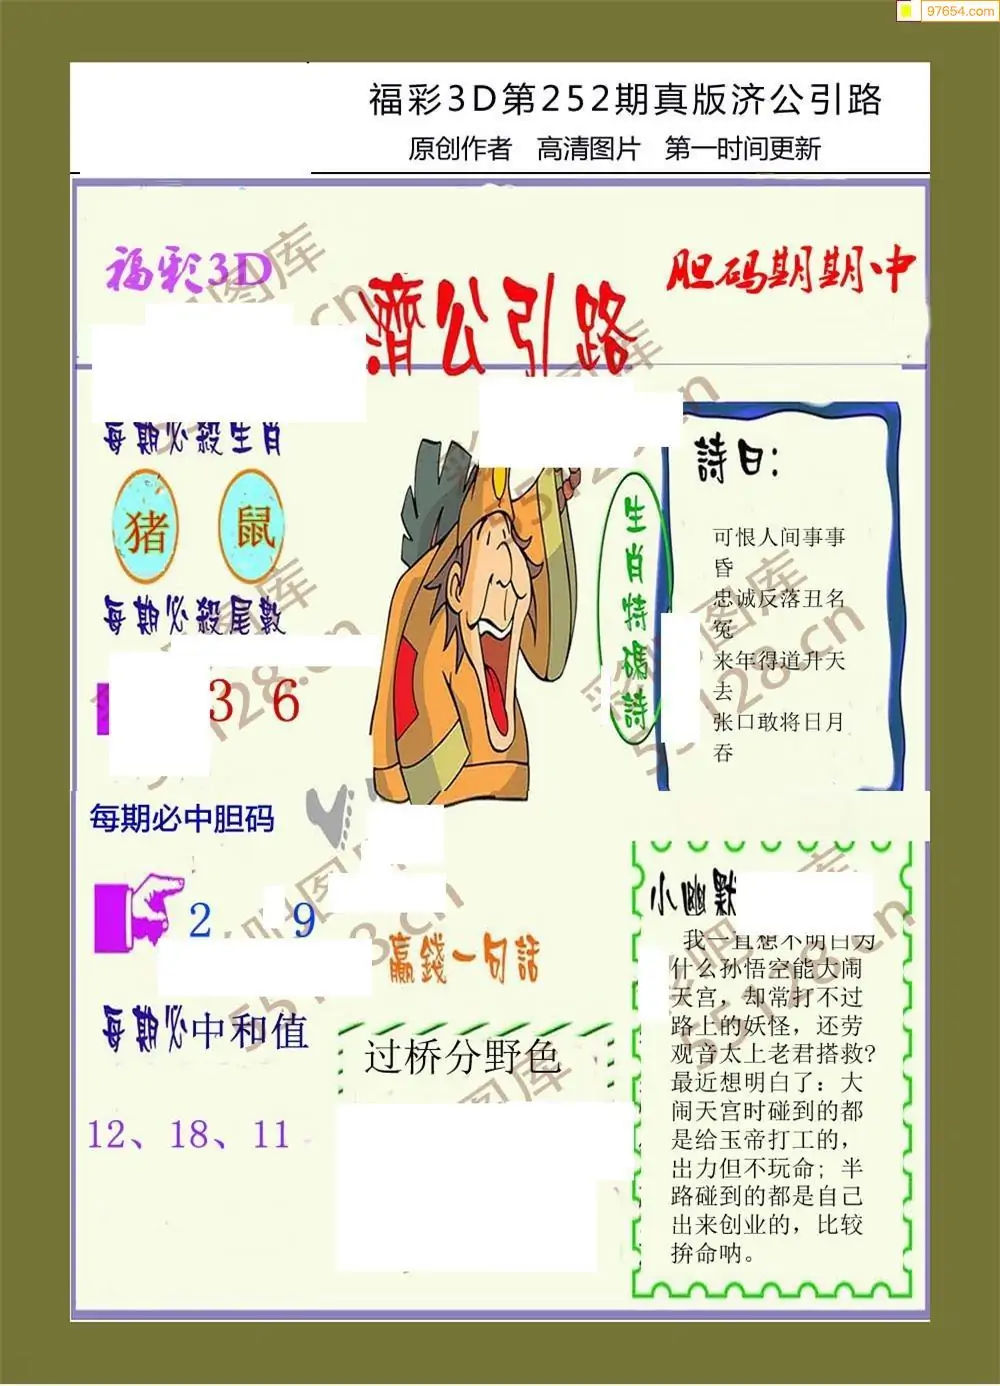 97654.com
福彩3D第252期真版济公引路
原创作者 高清图片 第一时间更新
福彩3D
濟公引路
胆码期期中
每期必殺生肖
猪 鼠
每期必殺尾數
3 6
每期必中胆码
2 9
每期必中和值
12、18、11
生肖特碼詩
詩曰:
可恨人间事事
昏
忠诚反落丑名
冤
来年得道升天
去
张口敢将日月
吞
赢錢一句話
过桥分野色
小幽默
我一直想不明白为
什么孙悟空能大闹
天宫，却常打不过
路上的妖怪，还劳
观音太上老君搭救?
最近想明白了：大
闹天宫时碰到的都
是给玉帝打工的，
出力但不玩命；半
路碰到的都是自己
出来创业的，比较
拚命呐。
彩吧图库
55128.cn
彩吧图库
55128.cn